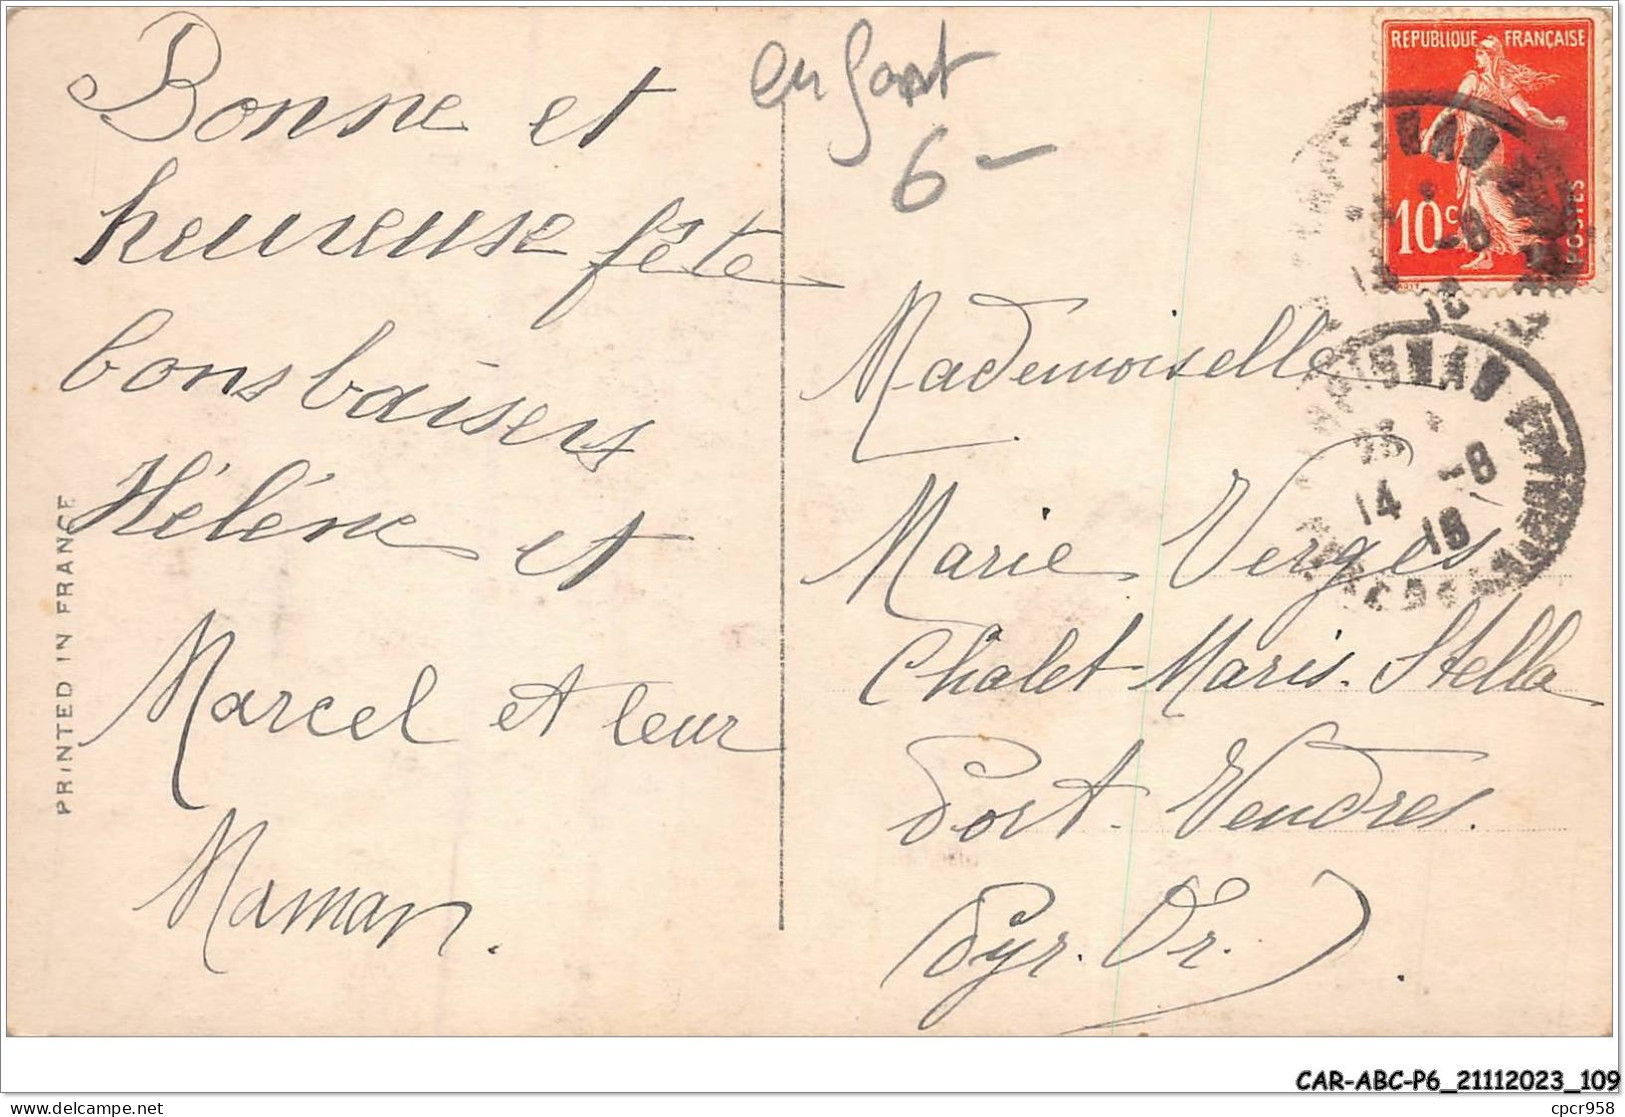 Bonne et
heureuse fête
bons baisers
Hélène et
Marcel et leur
Maman.
PRINTED IN FRANCE
enfant
6-
REPUBLIQUE FRANÇAISE
10c
POSTES
14 -8
18
Mademoiselle
Marie Verges
Chalet Maris. Stella
Port. Vendres.
Pyr. Or.
CAR-ABC-P6_21112023_109
cpcr958